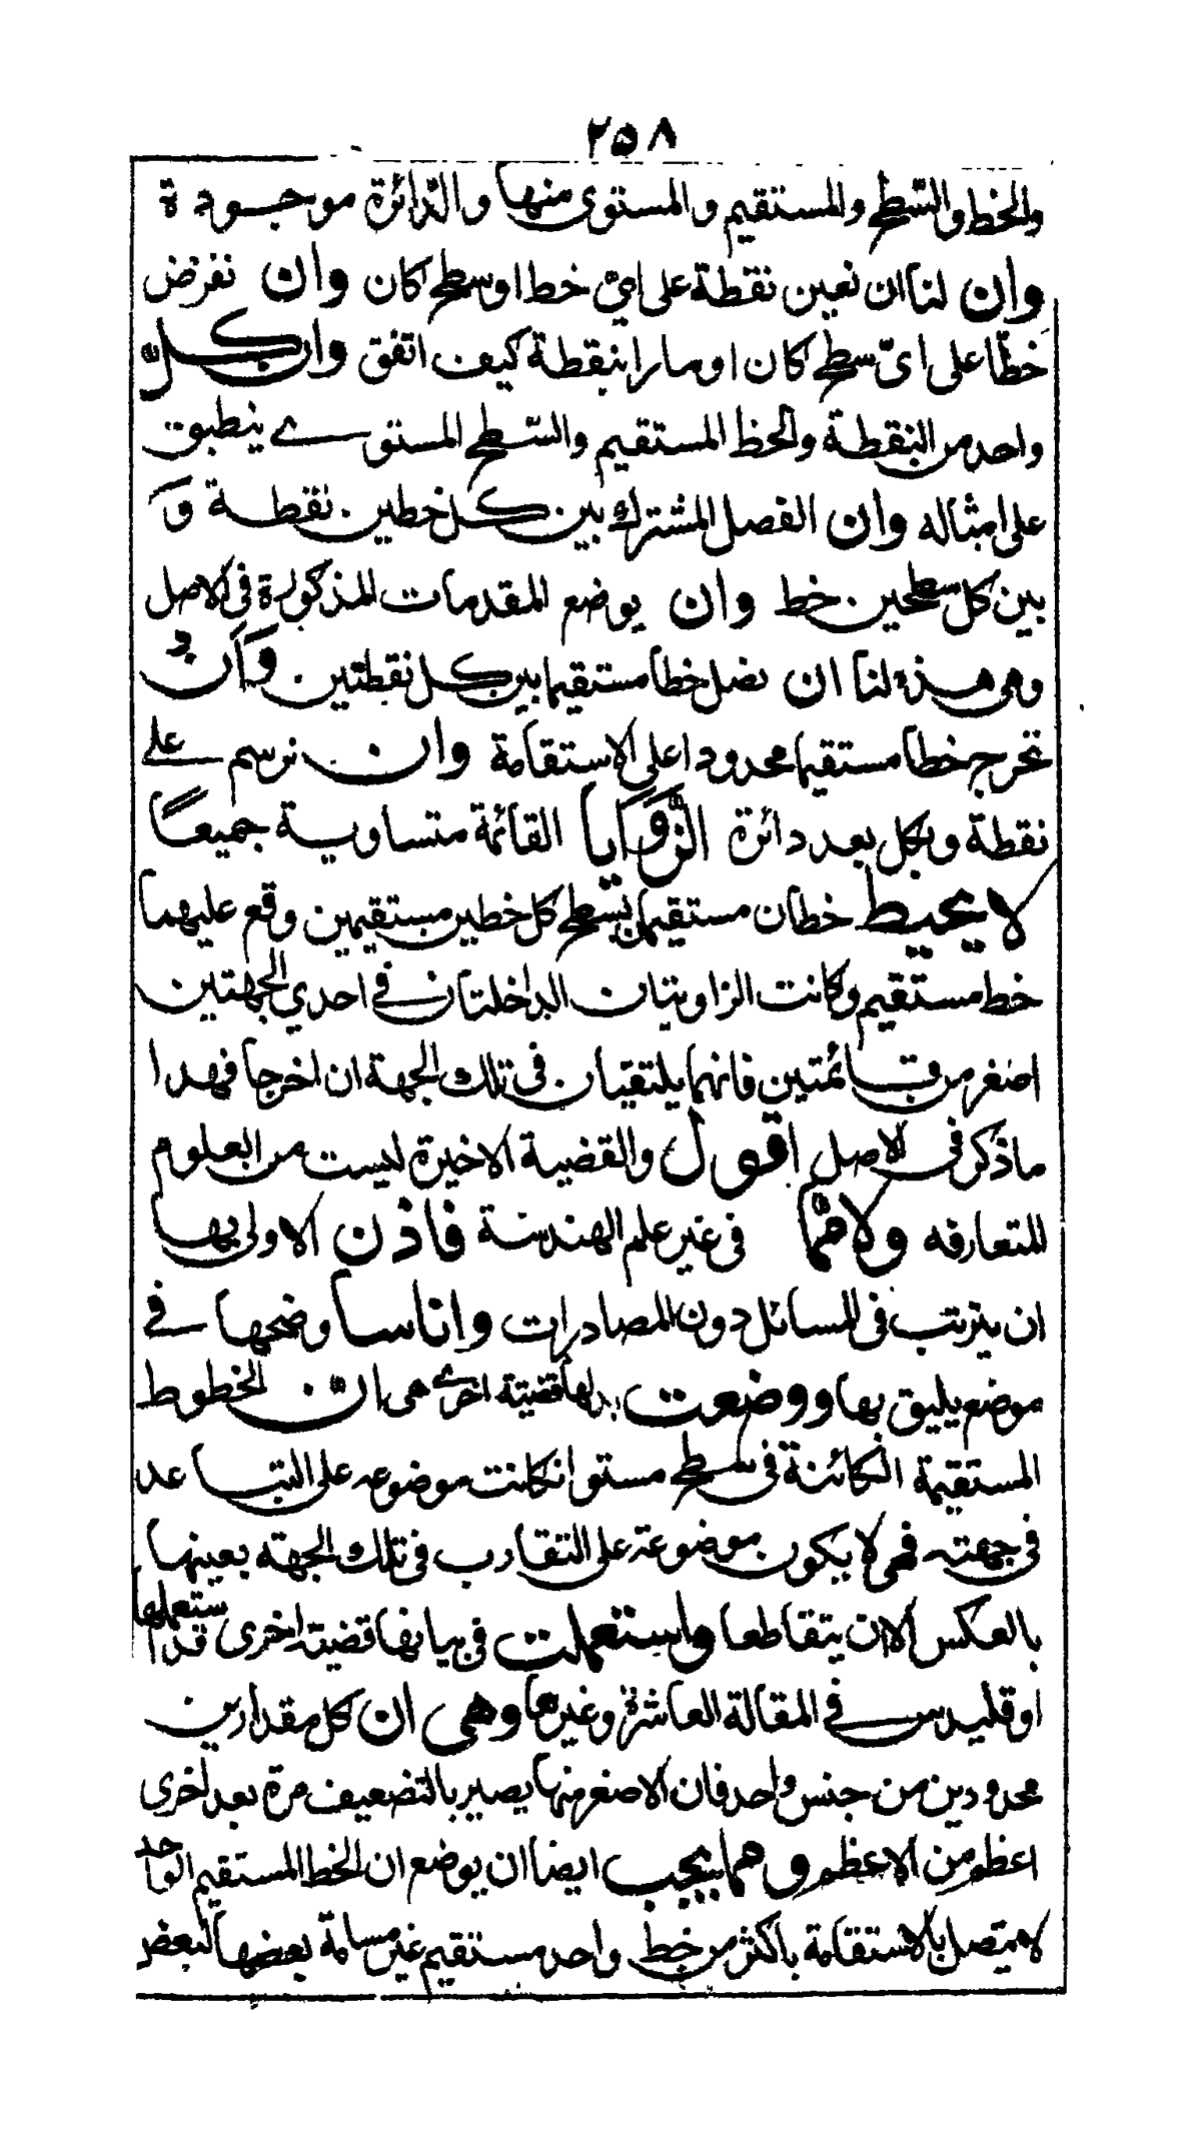 ٢٥٨
والخط والسّطح والمستقيم والمستوى منها والدّائرة موجودة
وان لنا ان نعين نقطة على اىّ خط او سطح كان وان نفرض
خطّا على اىّ سطح كان او مارا بنقطة كيف اتفق وان كلّ
واحد من النقطة والخط المستقيم والسّطح المستوے ينطبق
على امثاله وان الفصل المشترك بين كل خطين نقطة وَ
بين كل سطحين خط وان يوضع المقدمات المذكورة فى الاصل
وهى هذه لنا ان نصل خطا مستقيما بين كل نقطتين وَاَنْ
نخرج خطا مستقيما محدودا على الاستقامة وان نرسم علے
نقطة وبكل بعد دائرة الزَّوَايا القائمة متساوية جميعاً
لا يحيط خطان مستقيمان بسطح كل خطين مستقيمين وقع عليهما
خط مستقيم وكانت الزاويتان الداخلتان فے احدي الجهتين
اصغر من قائمتين فانهما يلتقيان فى تلك الجهة ان اخرجا فهذا
ما ذكر فى الاصل اقول والقضية الاخيرة ليست من العلوم
المتعارفه ولا ممّا فى غير علم الهندسة فاذن الاولى بها
ان يترتب فى المسائل دون المصادرات وانا ساوضحها فے
موضع يليق بها ووضعت بدلها قضيّة اخرے هى انّ الخطوط
المستقيمة الكائنة فى سطح مستو انكانت موضوعه على التباعد
فى جهته فهى لا يكون موضوعة على التقارب فى تلك الجهة بعينها
بالعكس الا ان يتقاطعا واستعملت فى بيانها قضيّة اخرى قد استعملها
اوقليدس فے المقالة العاشرة وغيرها وهى ان كل مقدارين
محدودين من جنس واحد فان الاصغر منها يصير بالتضعيف مرة بعد اخرى
اعظم من الاعظم و مما يجب ايضا ان يوضع ان الخط المستقيم الواحد
لا يتصل بالاستقامة باكثر من خط واحد مستقيم غير مسامة بعضها لبعض